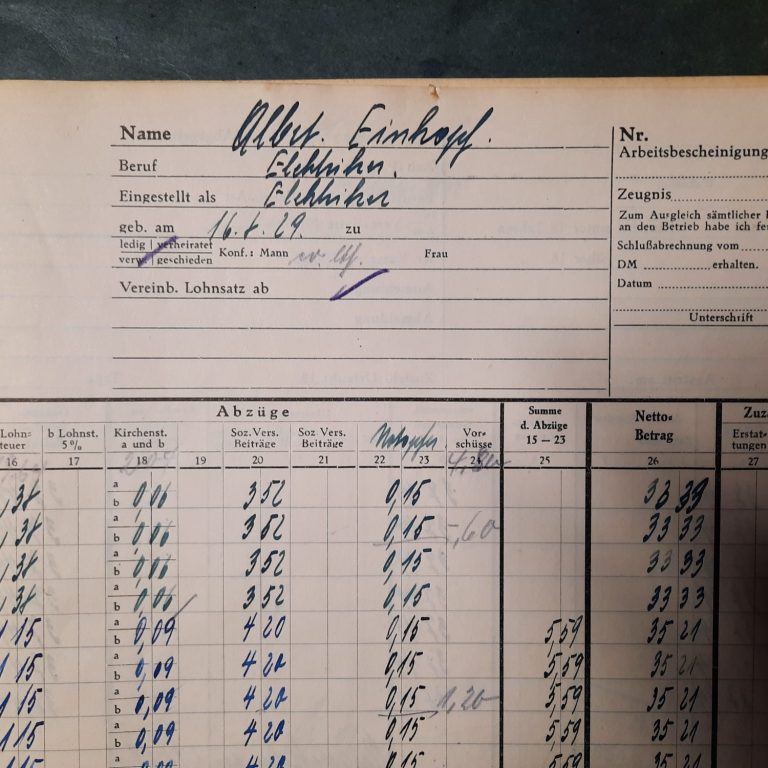 Name Albert. Einhopf.
Beruf Elektriker.
Eingestellt als Elektriker
geb. am 16. 8. 29. zu
ledig | verheiratet
verw. | geschieden Konf.: Mann ev. Frau
Vereinb. Lohnsatz ab
Nr.
Arbeitsbescheinigung
Zeugnis
Zum Ausgleich sämtlicher
an den Betrieb habe ich
Schlußabrechnung vom
DM erhalten.
Datum
Unterschrift
Abzüge
Lohn= b Lohnst. 5% Kirchenst. a und b Soz. Vers. Beiträge Soz Vers. Beiträge Notopfer Vor= schüsse Summe d. Abzüge 15 — 23 Netto= Betrag Erstat= tungen
16 17 18 19 20 21 22 23 24 25 26 27
,38 a b 0,06 3 52 0,15 33 33
,38 a b 0,06 3 52 0,15 5,60 33 33
,38 a b 0,06 3 52 0,15 33 33
,38 a b 0,06 3 52 0,15 33 33
1 15 a b 0,09 4 20 0,15 5,59 35 21
1 15 a b 0,09 4 20 0,15 5,59 35 21
1 15 a b 0,09 4 20 0,15 1,20 5,59 35 21
1 15 a b 0,09 4 20 0,15 5,59 35 21
1 15 a 0,09 4 20 0,15 5,59 35 21